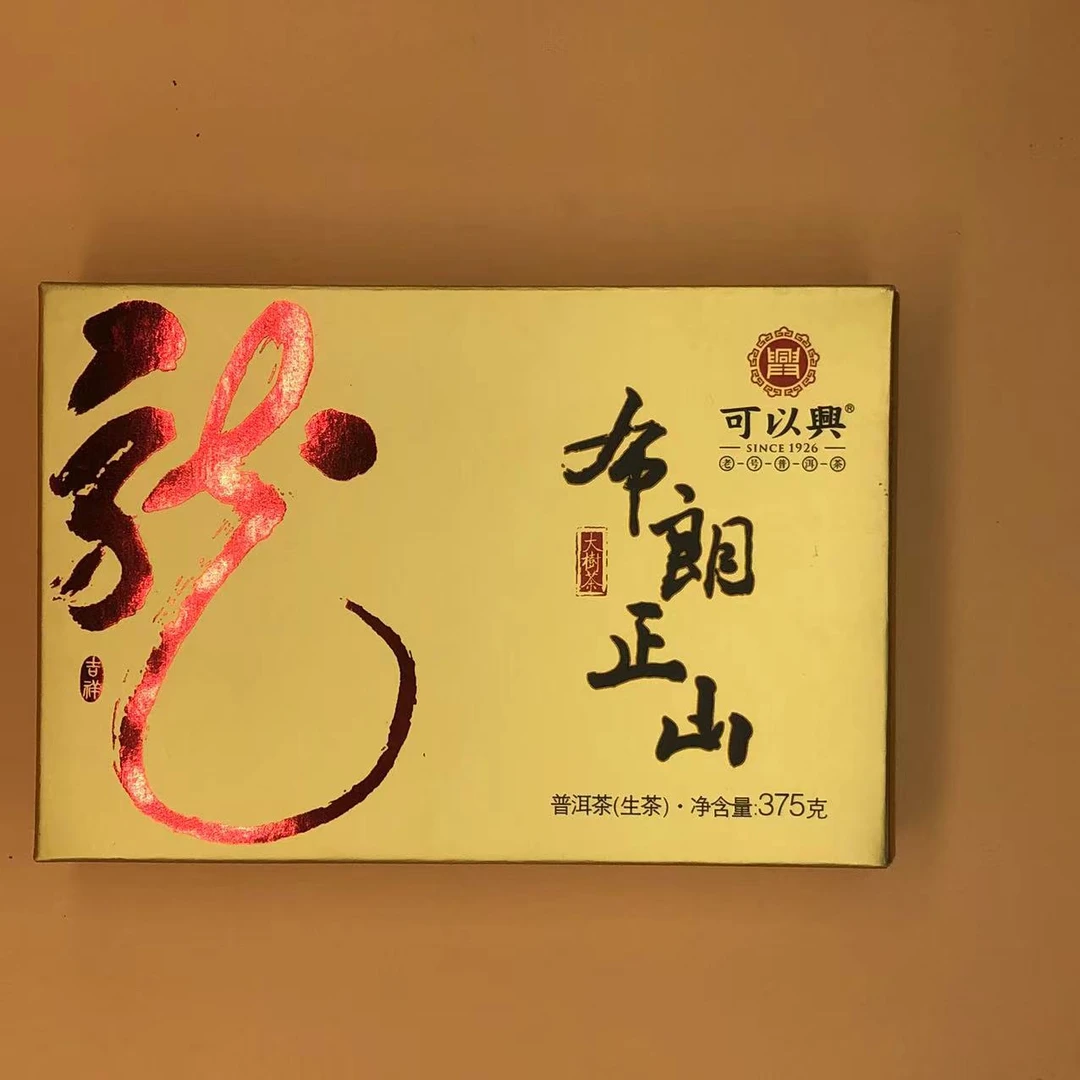 龍
吉祥
興
可以興®
SINCE 1926
老-号-普-洱-茶
布朗正山
大樹茶
普洱茶(生茶)·净含量:375克